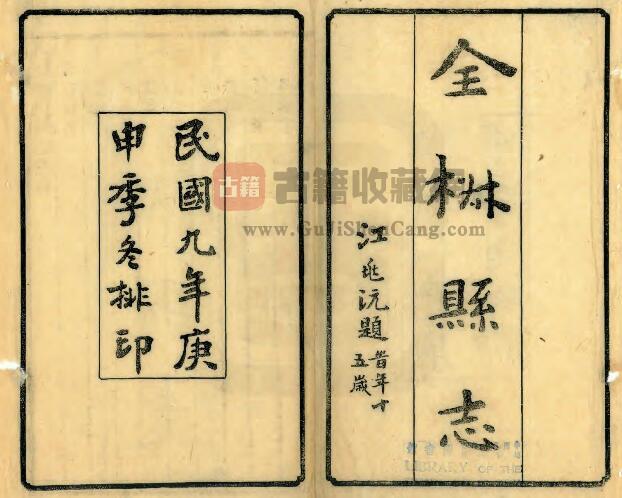 全椒縣志
江兆沅題
旹年十
五歲
民國九年庚
申季冬排印
古籍 古籍收藏
www.GuJiShouCang.com
LIBRARY OF THE